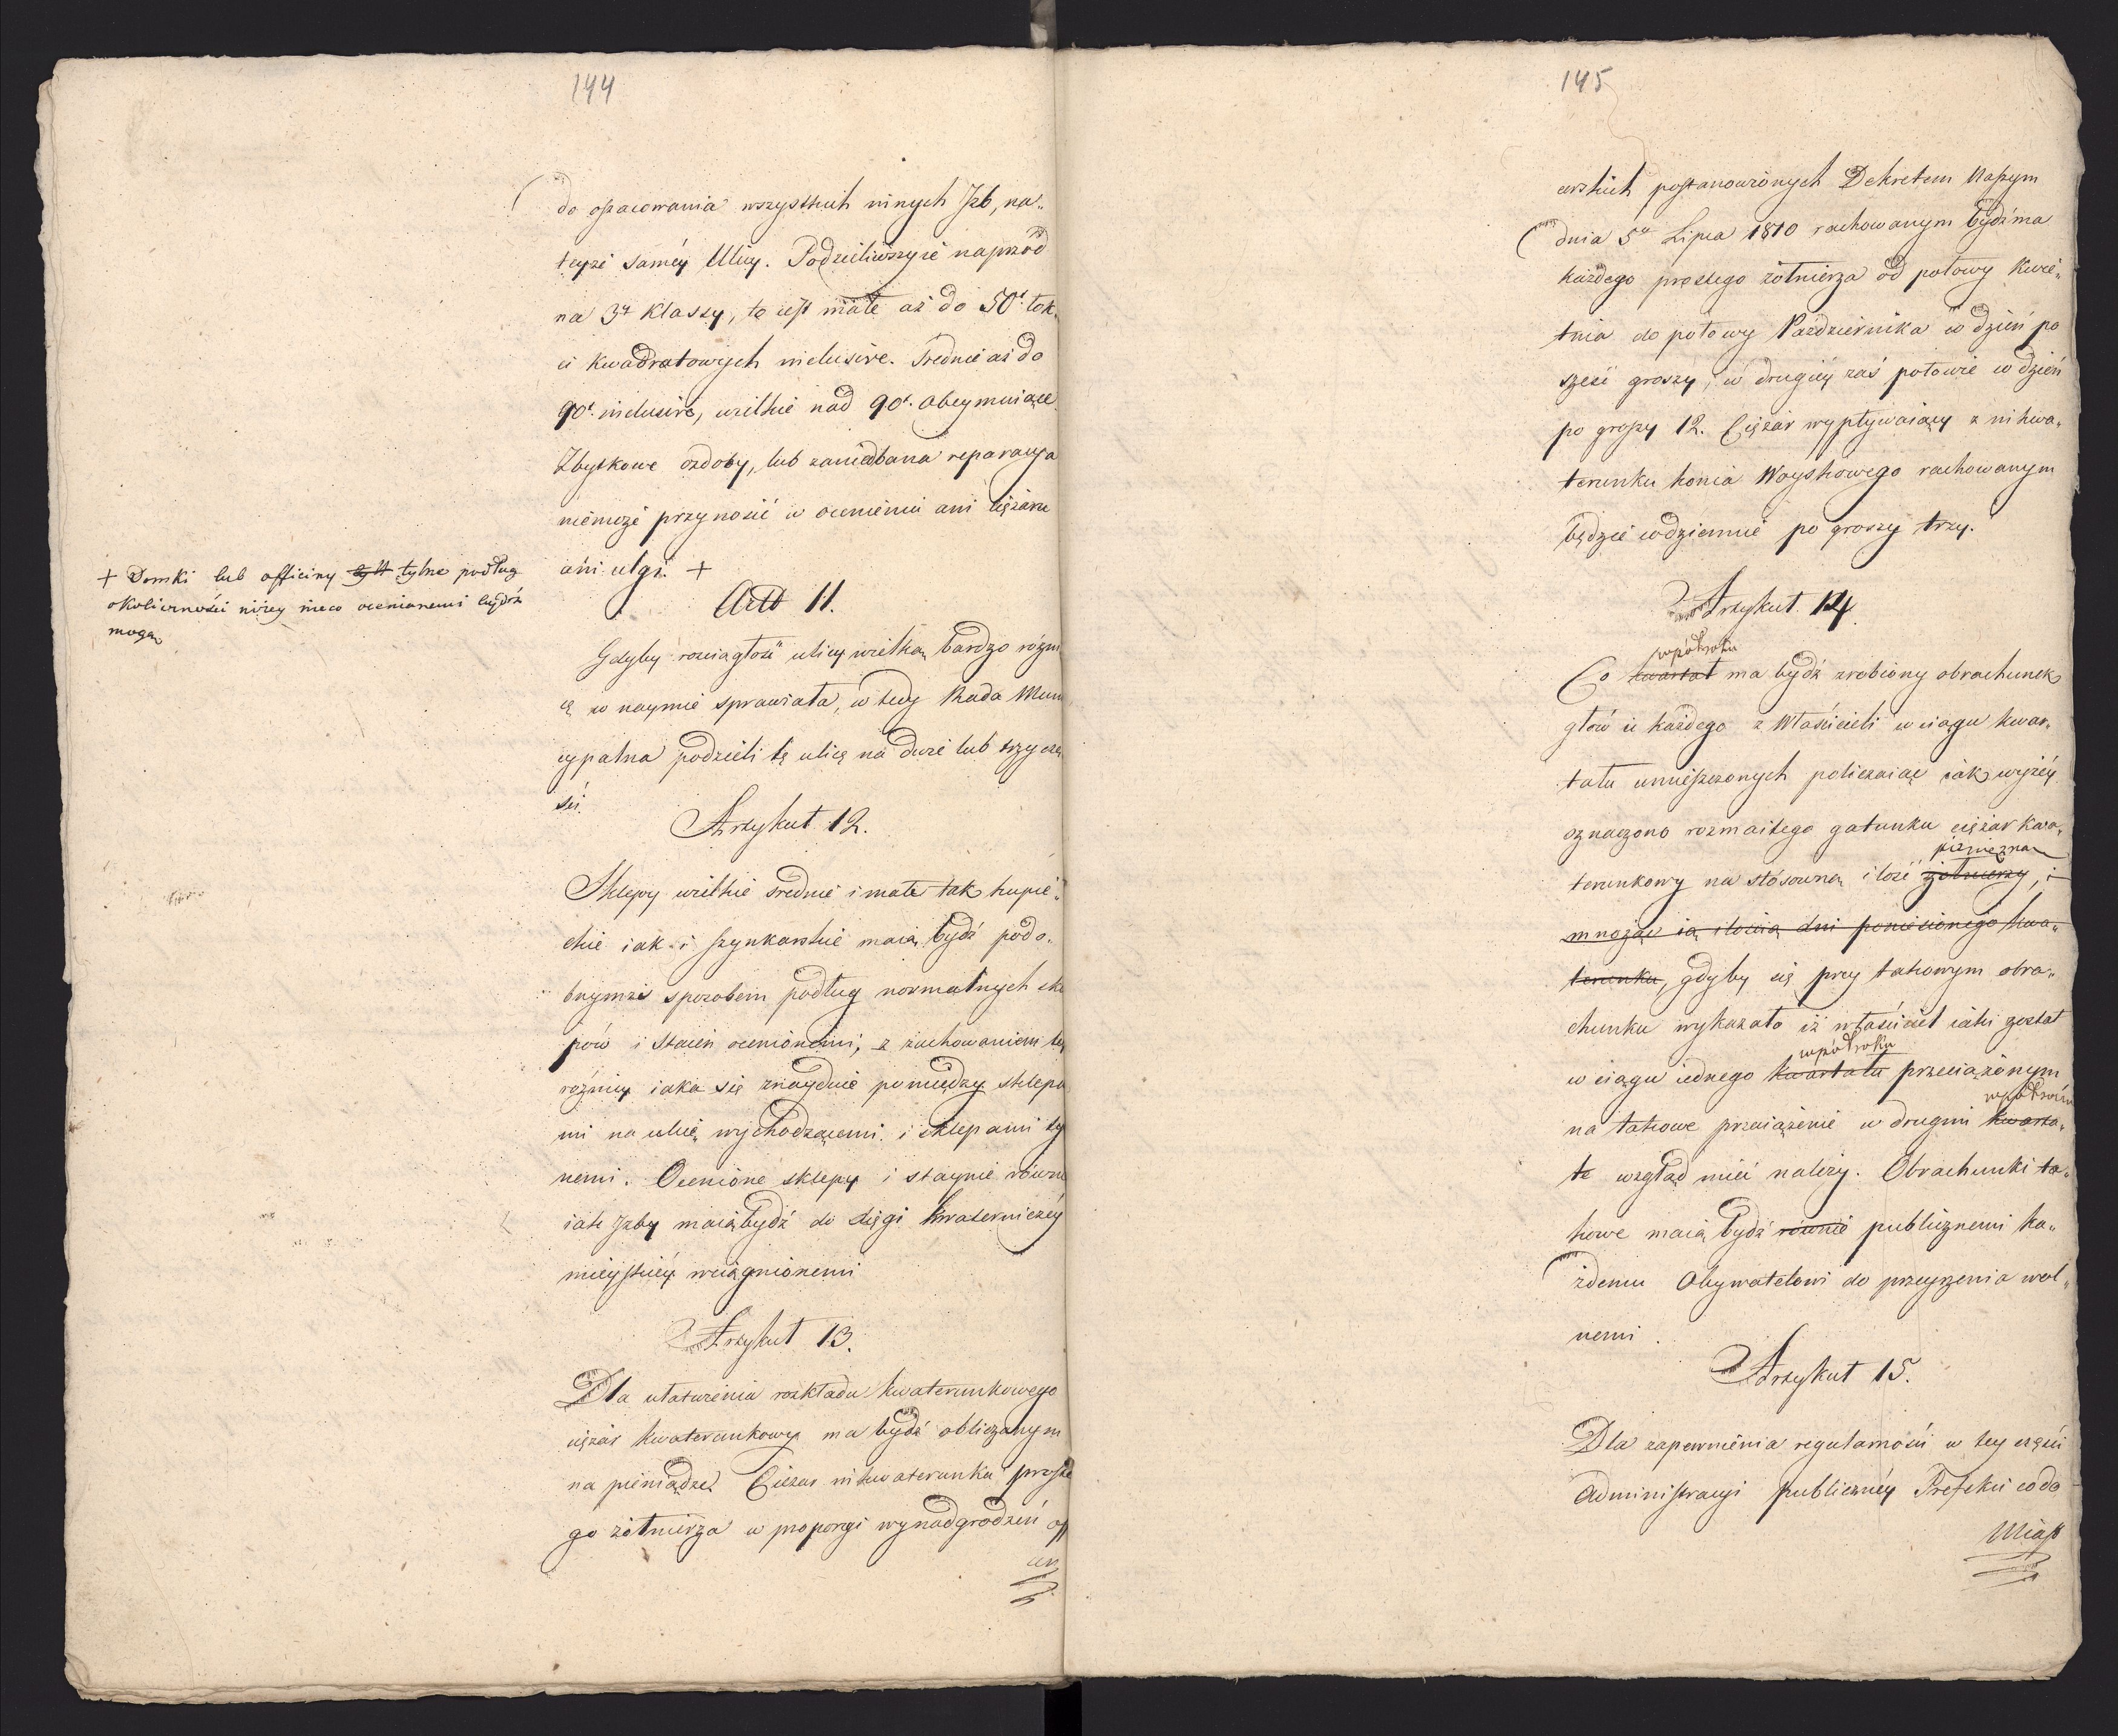 144
do oszacowania wszystkich innych Jzb, na„
teyże saméy Ulicy. Podzieliwszy ie naprzód
na 3y Klassy, to iest małe aż do 50t. łok„
ci kwadratowych inclusive. Srednie aż do
90t. inclusive, wielkie nad 90t. obeymuiące.
Zbytkowe ozdoby, lub zaniedbana reparacya
niemoże przynosić w ocenieniu ani ciężaru
ani ulgi. +
+ Domki lub officiny tylne podług
okoliczności niżey nieco ocenianemi bydź
mogą
Artt 11.
Gdyby rosciągłość ulicy wielką bardzo różni
cę w naymie sprawiała, w tedy Rada Muni
cypalna podzieli tę ulicę na dwie lub trzy czę
ści.
Artykuł 12.
Sklepy wielkie srednie i małe tak kupie„
ckie iak i szynkarskie maią bydź podo„
bnymże sposobem podług normalnych skle
pów i staien ocenionemi, z zachowaniem tey
różnicy iaka się znayduie pomiędzy sklepa
mi na ulicę wychodzącemi i sklepami ty
nemi. Ocenione sklepy i staynie równie
iak Jzby maią bydź do xięgi kwaterniczey
mieyskiéy wciągnionemi
Artykuł 13.
Dla ułatwienia rozkładu kwaterunkowego
ciężar kwaterunkowy ma bydź obliczanym
na pieniądze. Ciężar inkwaterunku proste
go żołnierza w proporcyi wynadgrodzeń off
cer
145
cerskich postanowionych Dekretem Naszym
dnia 5o Lipca 1810 rachowanym bydź ma
każdego prostego żołnierza od połowy Kwie„
tnia do połowy Października w dzień po
sześć groszy, w drugiéy zaś połowie w dzień
po groszy 12. Ciężar wypływaiący z inkwa„
terunku konia Woyskowego rachowanym
będzie codziennie po groszy trzy.
Artykuł 14.
wpółroku
Co kwartał ma bydź zrobiony obrachunek
głów u każdego z Właścicieli w ciągu kwar„
tału umieszczonych policzaiąc iak wyżéy
oznaczono rozmaitego gatunku ciężar kwa„
pieniężną
terunkowy na stosowną ilość żołnierzy, i
mnożąc ią ilością dni poniesionego kwa„
terunku, gdyby się przy takowym obra„
chunku wykazało iż właściciel iaki został
wpółroku
w ciągu iednego kwartału przeciążonym
wpółroczu
na takowe przeciążenie w drugim kwarta„
le wzgląd mieć należy. Obrachunki ta„
kowe maią bydź równie publicznemi ka„
żdemu Obywatelowi do przeyrzenia wol„
nemi.
Artykuł 15.
Dla zapewnienia regularności w tey części
Administracyi publicznéy Prefekci co do
Miast